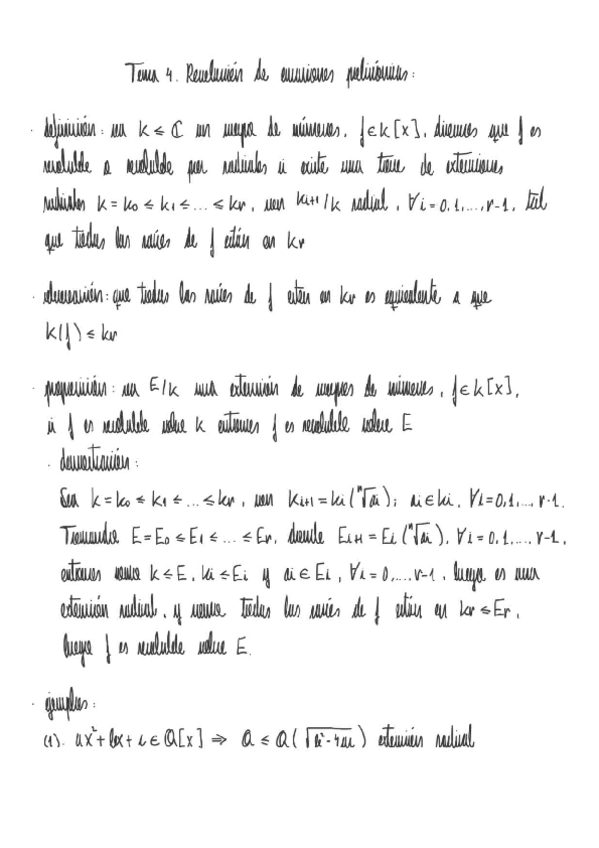 Tema 4. Resolución de ecuaciones polinómicas:
· definición: sea K ≤ ℂ un cuerpo de números, f∈K[x], diremos que f es
resoluble o resoluble por radicales si existe una torre de extensiones
radicales K=K₀ ≤ K₁ ≤ ... ≤ Kr, con Kᵢ₊₁/K radial, ∀i=0,1,...,r-1, tal
que todas las raíces de f están en Kr
· observación: que todas las raíces de f estén en Kr es equivalente a que
K(f) ≤ Kr
· proposición: sea E/K una extensión de cuerpos de números, f∈K[x],
si f es resoluble sobre K entonces f es resoluble sobre E
· demostración:
Sea K=K₀ ≤ K₁ ≤ ... ≤ Kr, con Kᵢ₊₁=Kᵢ(ⁿ√aᵢ); aᵢ∈Kᵢ, ∀i=0,1,...,r-1.
Tomando E=E₀ ≤ E₁ ≤ ... ≤ Er, donde Eᵢ₊₁=Eᵢ(ⁿ√aᵢ), ∀i=0,1,...,r-1,
entonces como K ≤ E, Kᵢ ≤ Eᵢ y aᵢ∈Eᵢ, ∀i=0,...,r-1, luego es una
extensión radical, y como todas las raíces de f están en Kr ≤ Er,
luego f es resoluble sobre E.
· ejemplos:
(1). ax²+bx+c∈Q[x] ⇒ Q ≤ Q(√b²-4ac) extensión radical